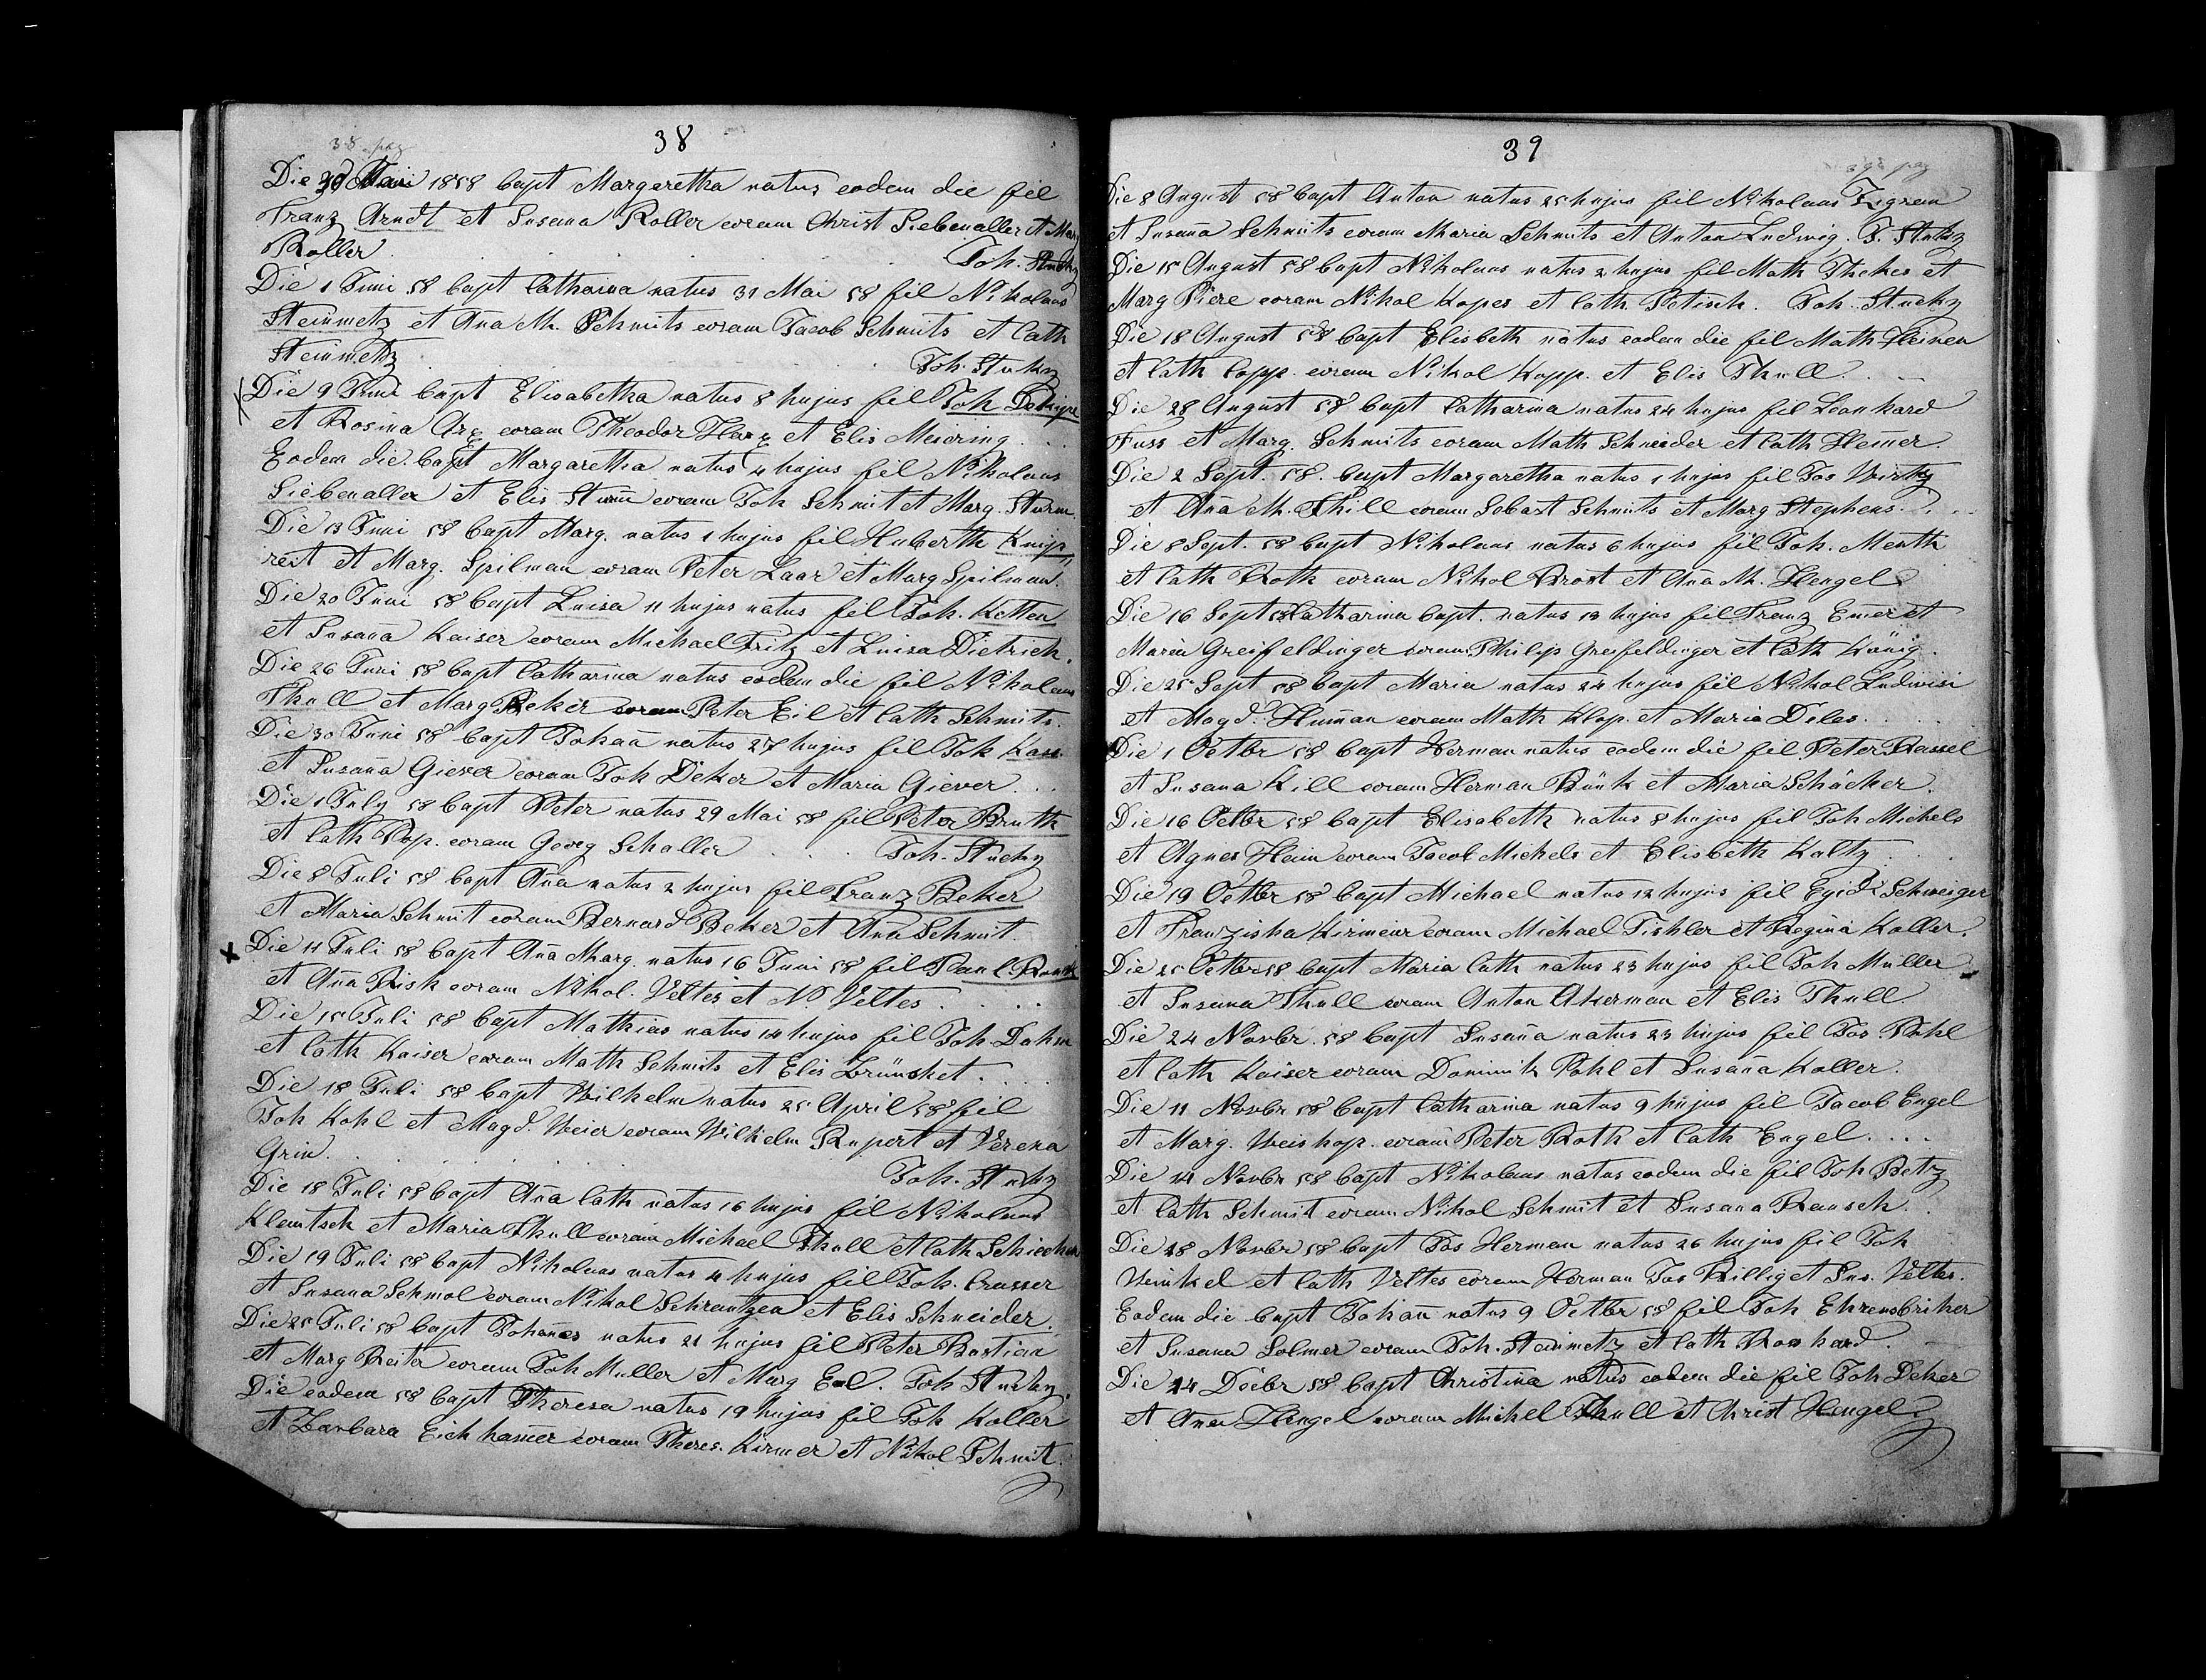 38 pag
38
Die 30 Mai 1858 bapt Margaretha natus eodem die fil
Franz Arndt et Susana Roller coram Christ Siebenaller et Marg
Roller . . . . Joh. Stuky
Die 1 Juni 58 bapt Catharina natus 31 Mai 58 fil Nikolaus
Steinmetz et Ana M. Schmits coram Jacob Schmits et Cath
Steinmetz . . . . Joh. Stuky
Die 9 Juni bapt Elisabetha natus 8 hujus fil Joh
et Rosina coram Theodor et Elis Meiering . . .
Eodem die bapt Margaretha natus 4 hujus fil Nikolaus
Siebenaller et Elis Sturm coram Joh Schmit et Marg. Sturm.
Die 13 Juni 58 bapt Marg. natus 1 hujus fil Huberth Knip
reit et Marg. Spilman coram Peter Laar et Marg Spilman.
Die 20 Juni 58 bapt Luisa 11 hujus natus fil Joh. Ketten
et Susaña Kaiser coram Michael Fritz et Luisa Dietrich.
Die 26 Juni 58 bapt Catharina natus eodem die fil Nikolaus
Thull et Marg Beker coram Peter Eil et Cath Schmits.
Die 30 Juni 58 bapt Johañ natus 27 hujus fil Joh Kass
et Susaña Giever coram Joh Deker et Maria Giever . . .
Die 1 July 58 bapt Peter natus 29 Mai 58 fil Peter Bruth
et Cath Pop. coram Georg Schaller . . . . Joh. Stuky
Die 8 Juli 58 bapt Aña natus 2 hujus fil Franz Beker
et Maria Schmit coram Bernard Beker et Aña Schmit.
x Die 11 Juli 58 bapt Aña Marg. natus 16 Juni 58 fil Paul
et Aña Risk coram Nikol. Veltes et N. Veltes . . . .
Die 15 Juli 58 bapt Mathias natus 14 hujus fil Joh. Dahm
et Cath Kaiser coram Math Schmits et Elis Brünsket . . . .
Die 18 Juli 58 bapt Wilhelm natus 25 April 58 fil
Joh Kohl et Magd. Weier coram Wilhelm Rupert et Verena
Grin . . . . Joh. Stuky
Die 18 Juli 58 bapt Aña Cath natus 16 hujus fil Nikolaus
Klemtsch et Maria Thull coram Michael Thull et Cath
Die 19 Juli 58 bapt Nikolaus natus 4 hujus fil Joh. Crasser
et Susana Schmol coram Nikol Schrantzen et Elis Schneider.
Die 25 Juli 58 bapt Johañes natus 21 hujus fil Peter Bastian
et Marg Reiter coram Joh Muller et Marg Eul. Joh Stuky.
Die eodem 58 bapt Theresa natus 19 hujus fil Joh Koller
et Barbara Eichham̄er coram Theres. Kirmer et Nikol Schmit.
39
39 pag
Die 8 August 58 bapt Anton natus 25 hujus fil Nikolaus Figram
et Susaña Schmits coram Maria Schmits et Anton Ludwig. J. Stuky
Die 15 August 58 bapt Nikolaus natus 2 hujus fil Math Thekes et
Marg Piere coram Nikol Kopes et Cath. Petisch. Joh. Stuchy
Die 18 August 58 bapt Elisbeth natus eodem die fil Math Heinen
et Cath Copp. coram Nikol Kopp. et Elis Thull. . —
Die 28 August 58 bapt Catharina natus 24 hujus fil Leonhard
Fuss et Marg. Schmits coram Math Schneider et Cath Hem̄er.
Die 2 Sept. 58. bapt Margaretha natus 1 hujus fil Jos Wirtz
et Aña M. Thill coram Sobast Schmits et Marg Stephens . . .
Die 8 Sept. 58 bapt Nikolaus natus 6 hujus fil Joh. Menth
et Cath Roth coram Nikol Brost et Aña M. Hengel
Die 16 Sept 58 Catharina bapt. natus 13 hujus fil Franz Em̄er et
Maria Greifeldinger coram Philip Greifeldinger et Cath König.
Die 25 Sept 58 bapt Maria natus 24 hujus fil Nikol Ludwisi
et Magd. Hum̄an coram Math Klop. et Maria Deles. . . .
Die 1 Octbr 58 bapt Herman natus eodem die fil Peter Rassel
et Susana Kill coram Herman Bünk et Maria Schäcker.
Die 16 Octbr 58 bapt Elisabeth natus 8 hujus fil Joh Michels
et Agnes Hein coram Jacob Michels et Elisbeth Kaltz . . .
Die 19 Octbr 58 bapt Michael natus 12 hujus fil Egid. Schweiger
et Franziska Kirmeur coram Michael Fishler et Regina Koller.
Die 25 Octbr 58 bapt Maria Cath natus 23 hujus fil Joh Müller
et Susana Thull coram Anton Akerman et Elis Thull
Die 24 Novbr. 58 bapt Susaña natus 23 hujus fil Jos. Pohl
et Cath Kaiser coram Dominik Pohl et Susaña Koller.
Die 11 Novbr 58 bapt Catharina natus 9 hujus fil Jacob Engel
et Marg. Weishop. coram Peter Roth et Cath Engel . . . .
Die 14 Novbr 58 bapt Nikolaus natus eodem die fil Joh Betz
et Cath Schmit coram Nikol Schmit et Susana Rausch.
Die 28 Novbr 58 bapt Jos Herman natus 26 hujus fil Joh
Weinkel et Cath Veltes coram Herman Jos Billig et Sus. Veltes.
Eodem die bapt Johañ natus 9 Octbr 58 fil Joh Ehrensbriker
et Susana Solmer coram Joh. Steinmetz et Cath
Die 14 Decbr 58 bapt Christina natus eodem die fil Joh Deker
et Ana Hengel coram Michel Thull et Christ Hengel.